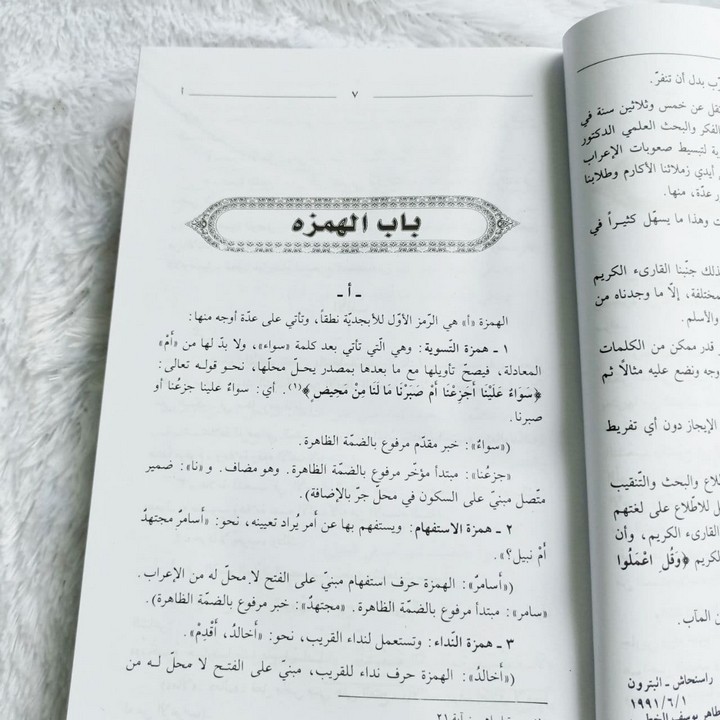 ٧
أ
باب الهمزه
ـ أ ـ
الهمزة «أ» هي الرّمز الأوّل للأبجديّة نطقاً، وتأتي على عدّة أوجه منها:
١ ـ همزة التّسوية: وهي الّتي تأتي بعد كلمة «سواء»، ولا بدّ لها من «أَمْ»
المعادلة، فيصحّ تأويلها مع ما بعدها بمصدر يحلّ محلّها، نحو قوله تعالى:
﴿سَوَاءٌ عَلَيْنَا أَجَزِعْنَا أَمْ صَبَرْنَا مَا لَنَا مِنْ مَحِيصٍ﴾(١). أي: سواءٌ علينا جزعُنا أو
صبرنا.
(«سواءٌ»: خبر مقدّم مرفوع بالضمّة الظاهرة.
«جزعُنا»: مبتدأ مؤخّر مرفوع بالضمّة الظاهرة. وهو مضاف. و«نا»: ضمير
متّصل مبنيّ على السكون في محلّ جرّ بالإضافة).
٢ ـ همزة الاستفهام: ويستفهم بها عن أمر يُراد تعيينه، نحو: «أسامرٌ مجتهدٌ
أَمْ نبيل؟».
(«أسامرٌ»: الهمزة حرف استفهام مبنيّ على الفتح لا محلّ له من الإعراب.
«سامر»: مبتدأ مرفوع بالضمّة الظاهرة. «مجتهدٌ»: خبر مرفوع بالضمّة الظاهرة).
٣ ـ همزة النّداء: وتستعمل لنداء القريب، نحو: «أخالدُ، أَقْدِمْ».
(«أخالدُ»: الهمزة حرف نداء للقريب، مبنيّ على الفتح لا محلّ له من
بدل أن تنفرّ.
عن خمس وثلاثين سنة في
الفكر والبحث العلمي الدكتور
لتبسيط صعوبات الإعراب
أيدي زملائنا الأكارم وطلابنا
عدّة، منها.
وهذا ما يسهّل كثيراً في
ذلك جنّبنا القارىء الكريم
إلّا ما وجدناه من
والأسلم.
قدر ممكن من الكلمات
ونضع عليه مثالاً ثم
الإيجاز دون أي تفريط
والبحث والتّنقيب
للاطّلاع على لغتهم
القارىء الكريم، وأن
الكريم ﴿وَقُلِ اعْمَلُوا
المآب.
راسنحاش ـ البترون
١٩٩١/٦/١
يوسف